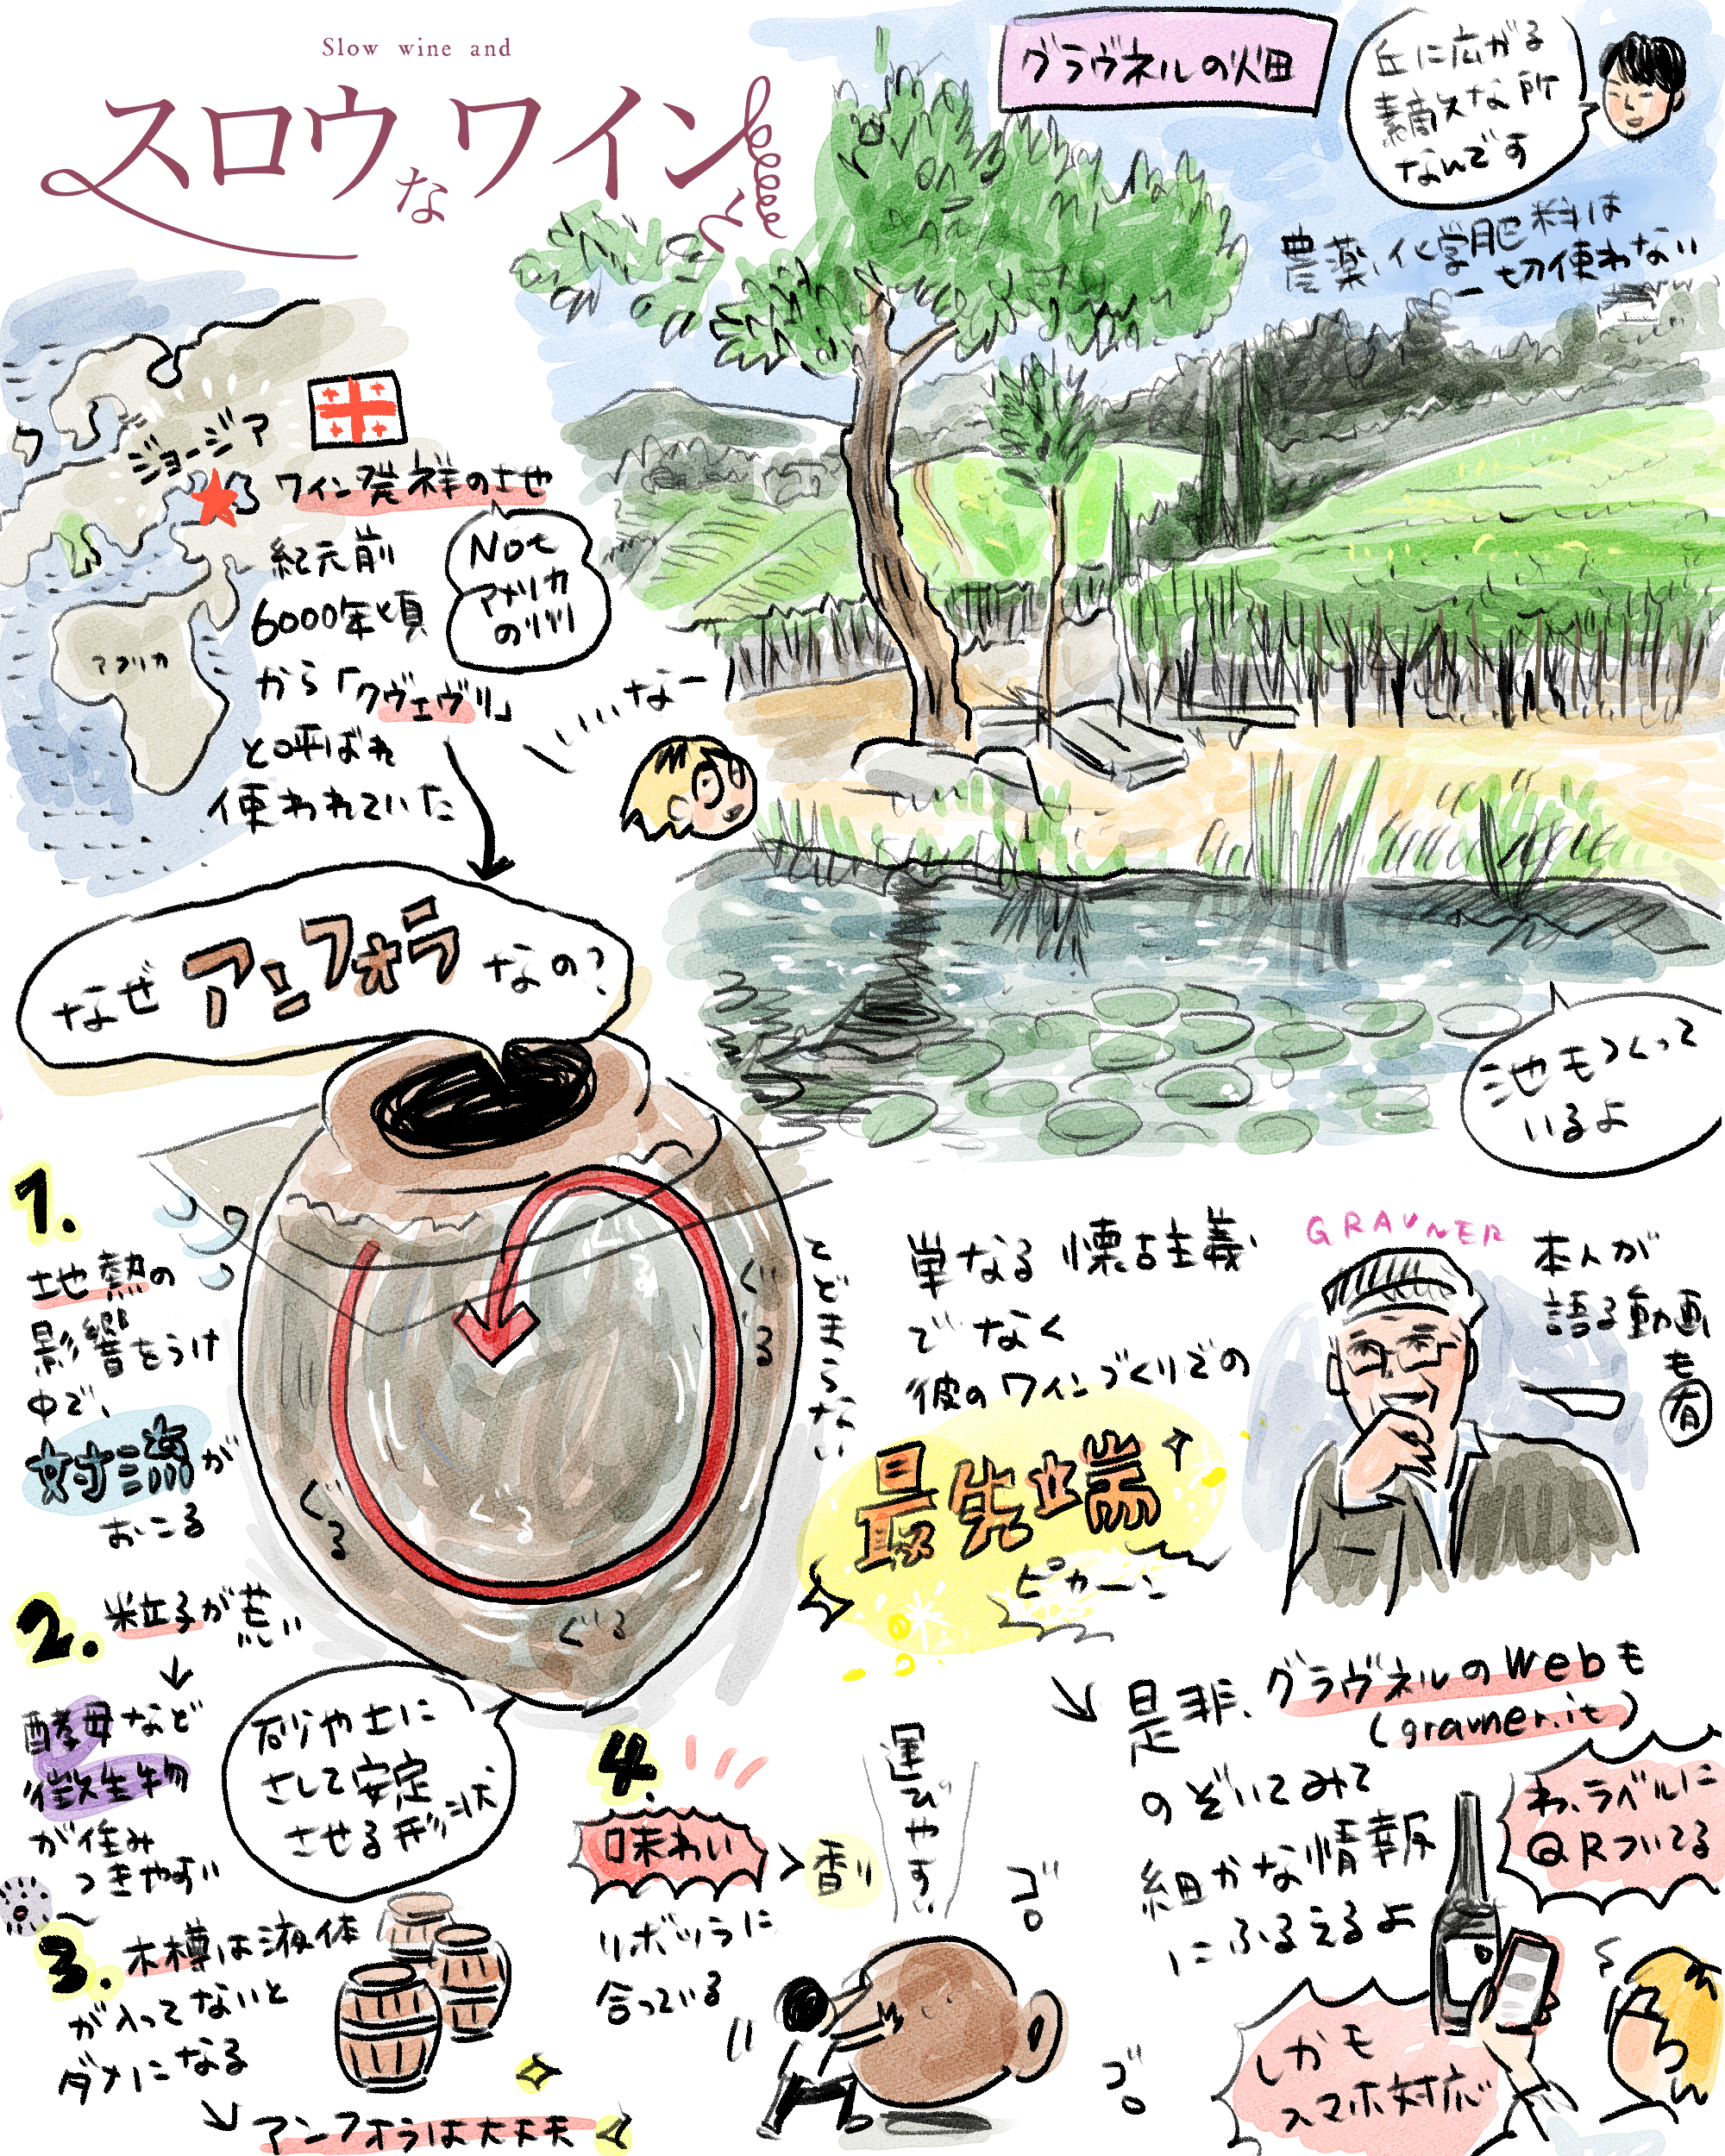 Slow wine and
スロウなワインと
グラヴネルの畑
丘に広がる
素敵な所
なんです
農薬、化学肥料は
一切使わない
ジョージア
ワイン発祥の土地
Not
アメリカ
のツリリ
アフリカ
紀元前
6000年頃
から「クヴェヴリ」
と呼ばれ
使われていた
なー
なぜアンフォラなの?
池もつくって
いるよ
1.
地熱の
影響をうけ
中で、
対流が
おこる
ぐるぐる
ぐるぐる
ぐるぐる
とどまらない
2. 粒子が荒い
↓
酵母など
微生物
が住み
つきやすい
砂や土に
さして安定
させる形状
3. 木樽は液体
が入ってないと
ダメになる
アンフォラは大丈夫
4.
味わい>香り
リボッラに
合っている
運びやすい
ゴロ
ゴロ
単なる懐古主義
でなく
彼のワインづくりでの
最先端
ピカーン
GRAVNER
本人が
語る動画
も
有
是非、グラヴネルのWebも
(gravner.it)
のぞいてみて
細かな情報
にふるえるよ
わ、ラベルに
QRついてる
しかも
スマホ対応